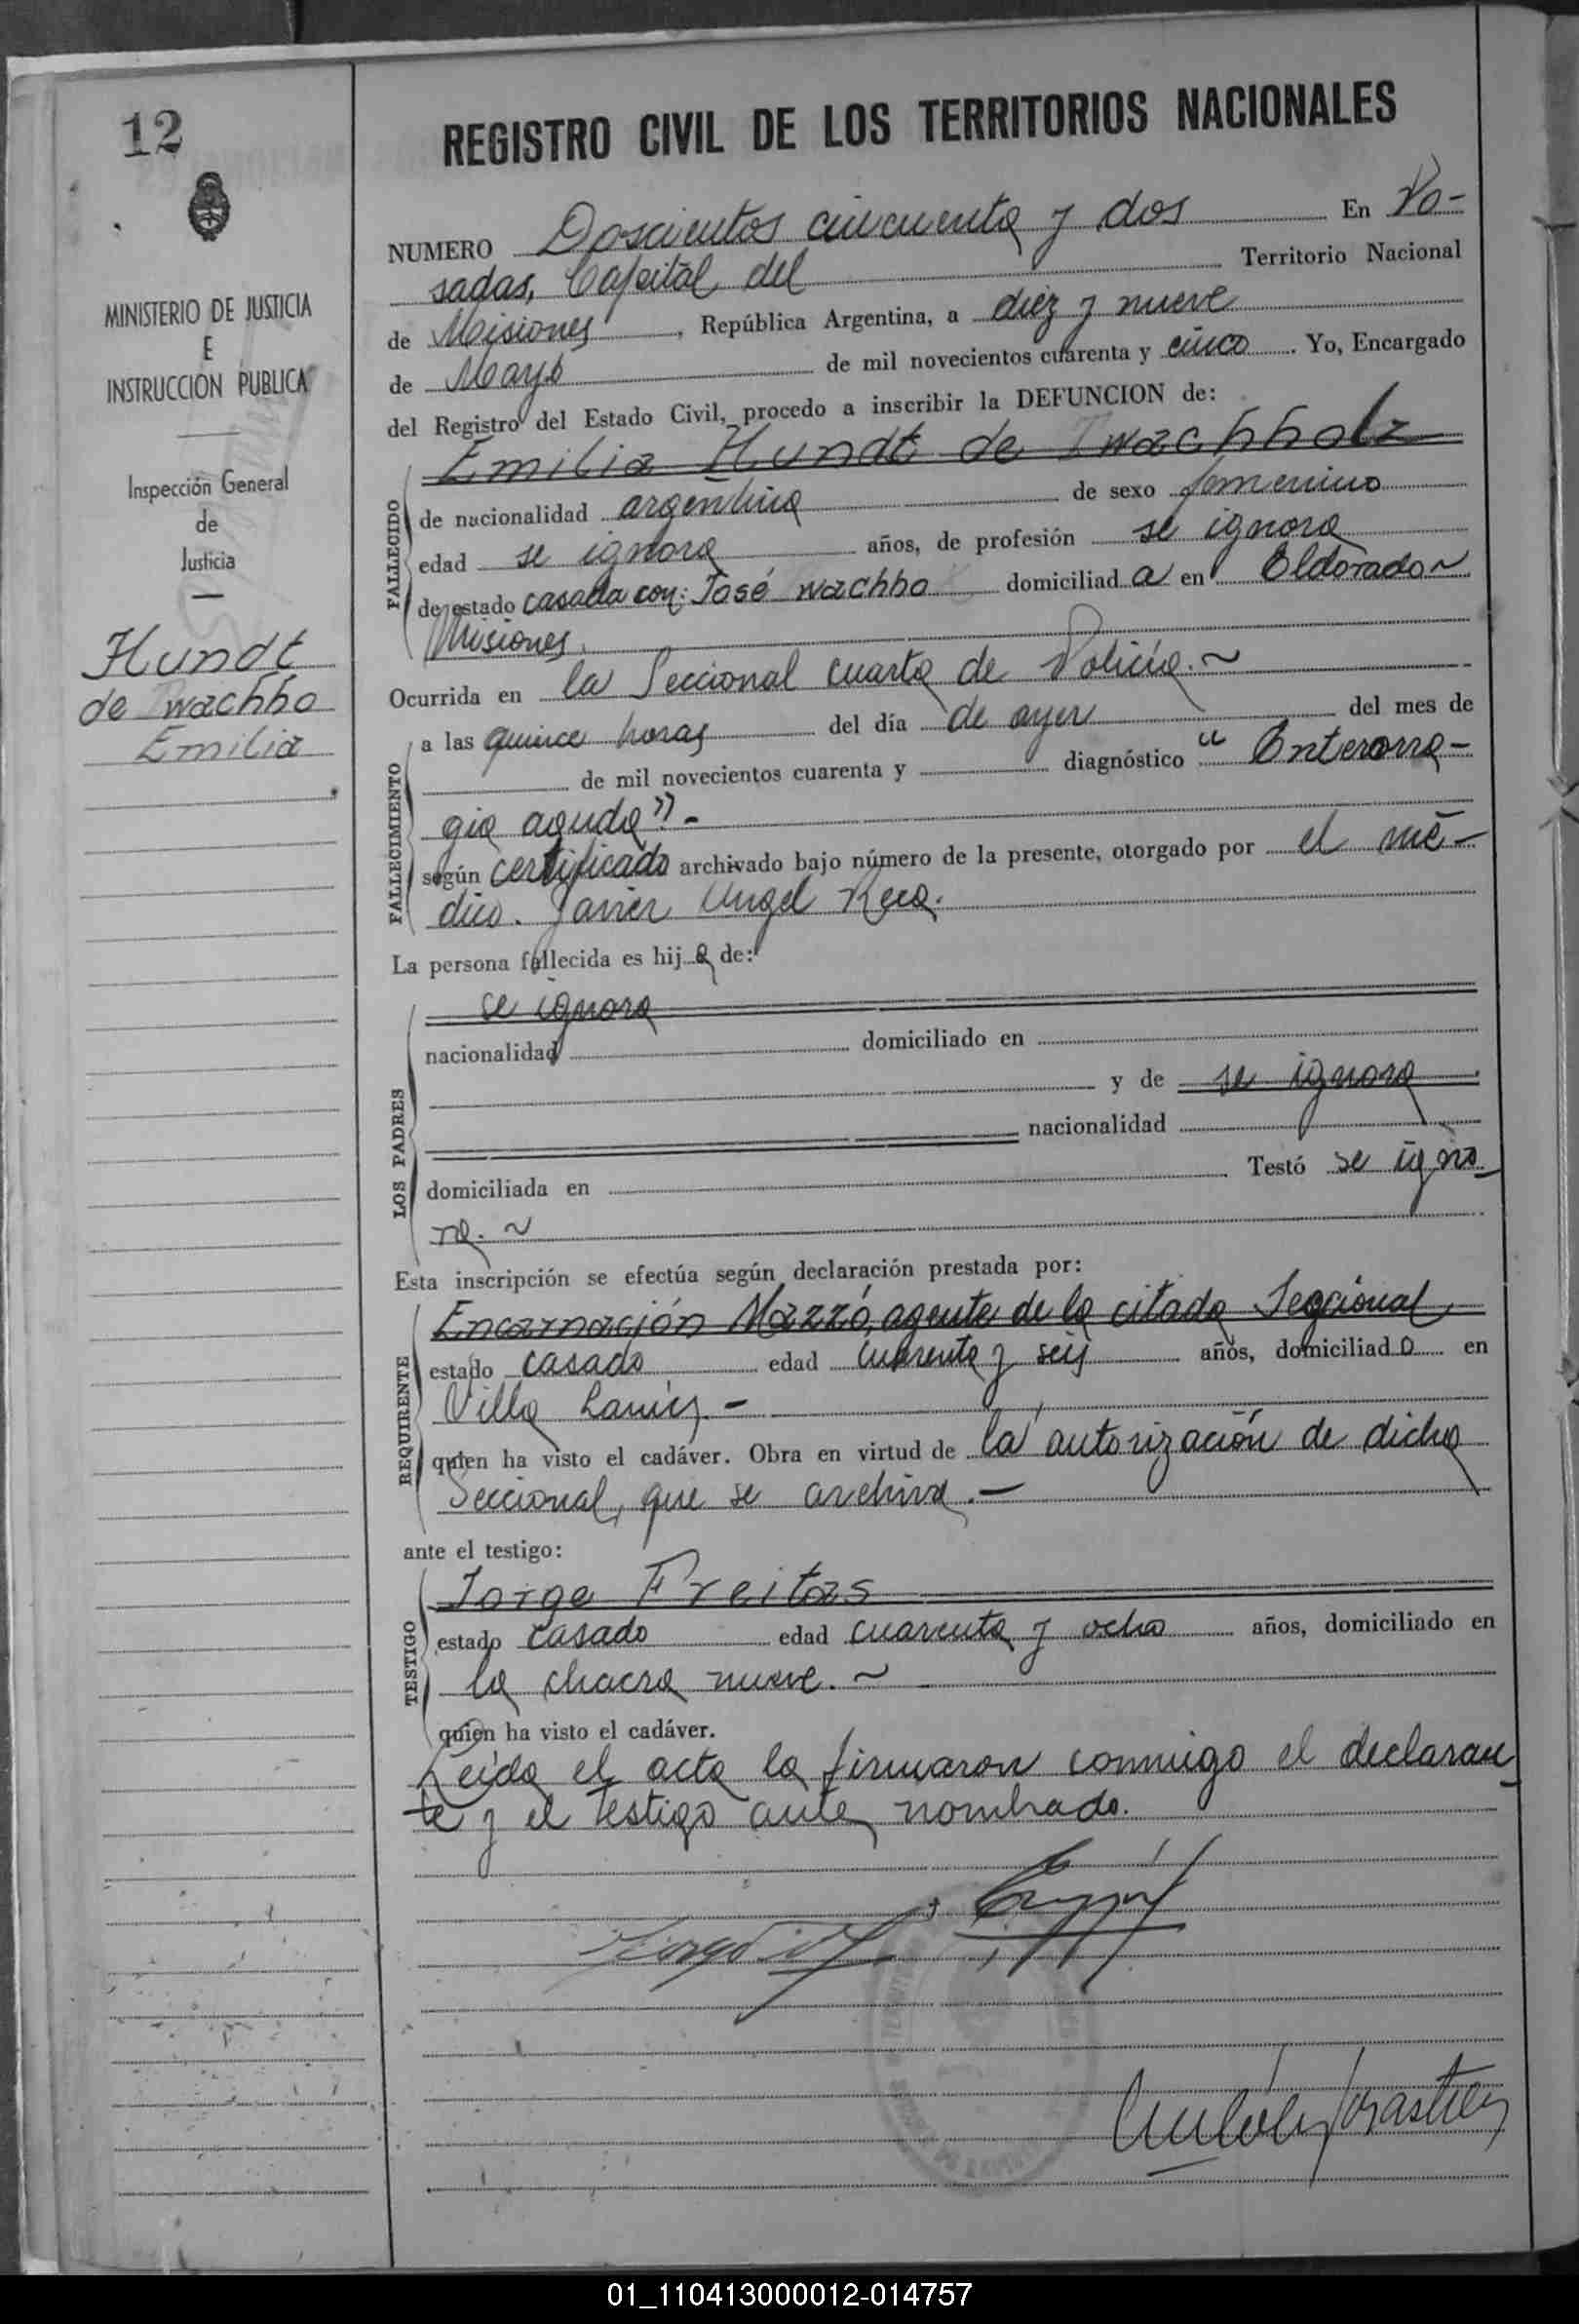 12
MINISTERIO DE JUSTICIA
E
INSTRUCCION PUBLICA
Inspección General
de
Justicia
Hundt
de Wachho
Emilia
REGISTRO CIVIL DE LOS TERRITORIOS NACIONALES
NUMERO Doscientos cincuenta y dos En Po-
sadas, Capital del Territorio Nacional
de Misiones, República Argentina, a diez y nueve
de Mayo de mil novecientos cuarenta y cinco. Yo, Encargado
del Registro del Estado Civil, procedo a inscribir la DEFUNCION de:
Emilia Hundt de Wachholz
FALLECIDO
de nacionalidad argentina de sexo femenino
edad se ignora años, de profesión se ignora
de estado casada con: José Wachho domiciliada en Eldorado ~
Misiones.
Ocurrida en la Seccional cuarta de Policía. ~
FALLECIMIENTO
a las quince horas del día de ayer del mes de
de mil novecientos cuarenta y diagnóstico "Enterorra-
gia aguda".-
según certificado archivado bajo número de la presente, otorgado por el mé-
dico. Javier Angel
La persona fallecida es hija de:
LOS PADRES
se ignora
nacionalidad domiciliado en
y de se ignora
nacionalidad
domiciliada en Testó se igno-
ra. ~
Esta inscripción se efectúa según declaración prestada por:
REQUIRENTE
Encarnación Mazzó, agente de la citada Seccional
estado casado edad cuarenta y seis años, domiciliado en
Villa Lanús. -
quien ha visto el cadáver. Obra en virtud de la autorización de dicha
Seccional, que se archiva. —
ante el testigo:
TESTIGO
Jorge Freitas
estado casado edad cuarenta y ocho años, domiciliado en
la chacra nueve. ~
quien ha visto el cadáver.
Leída el acta la firmaron conmigo el declaran-
te y el testigo antes nombrado.
01_110413000012-014757